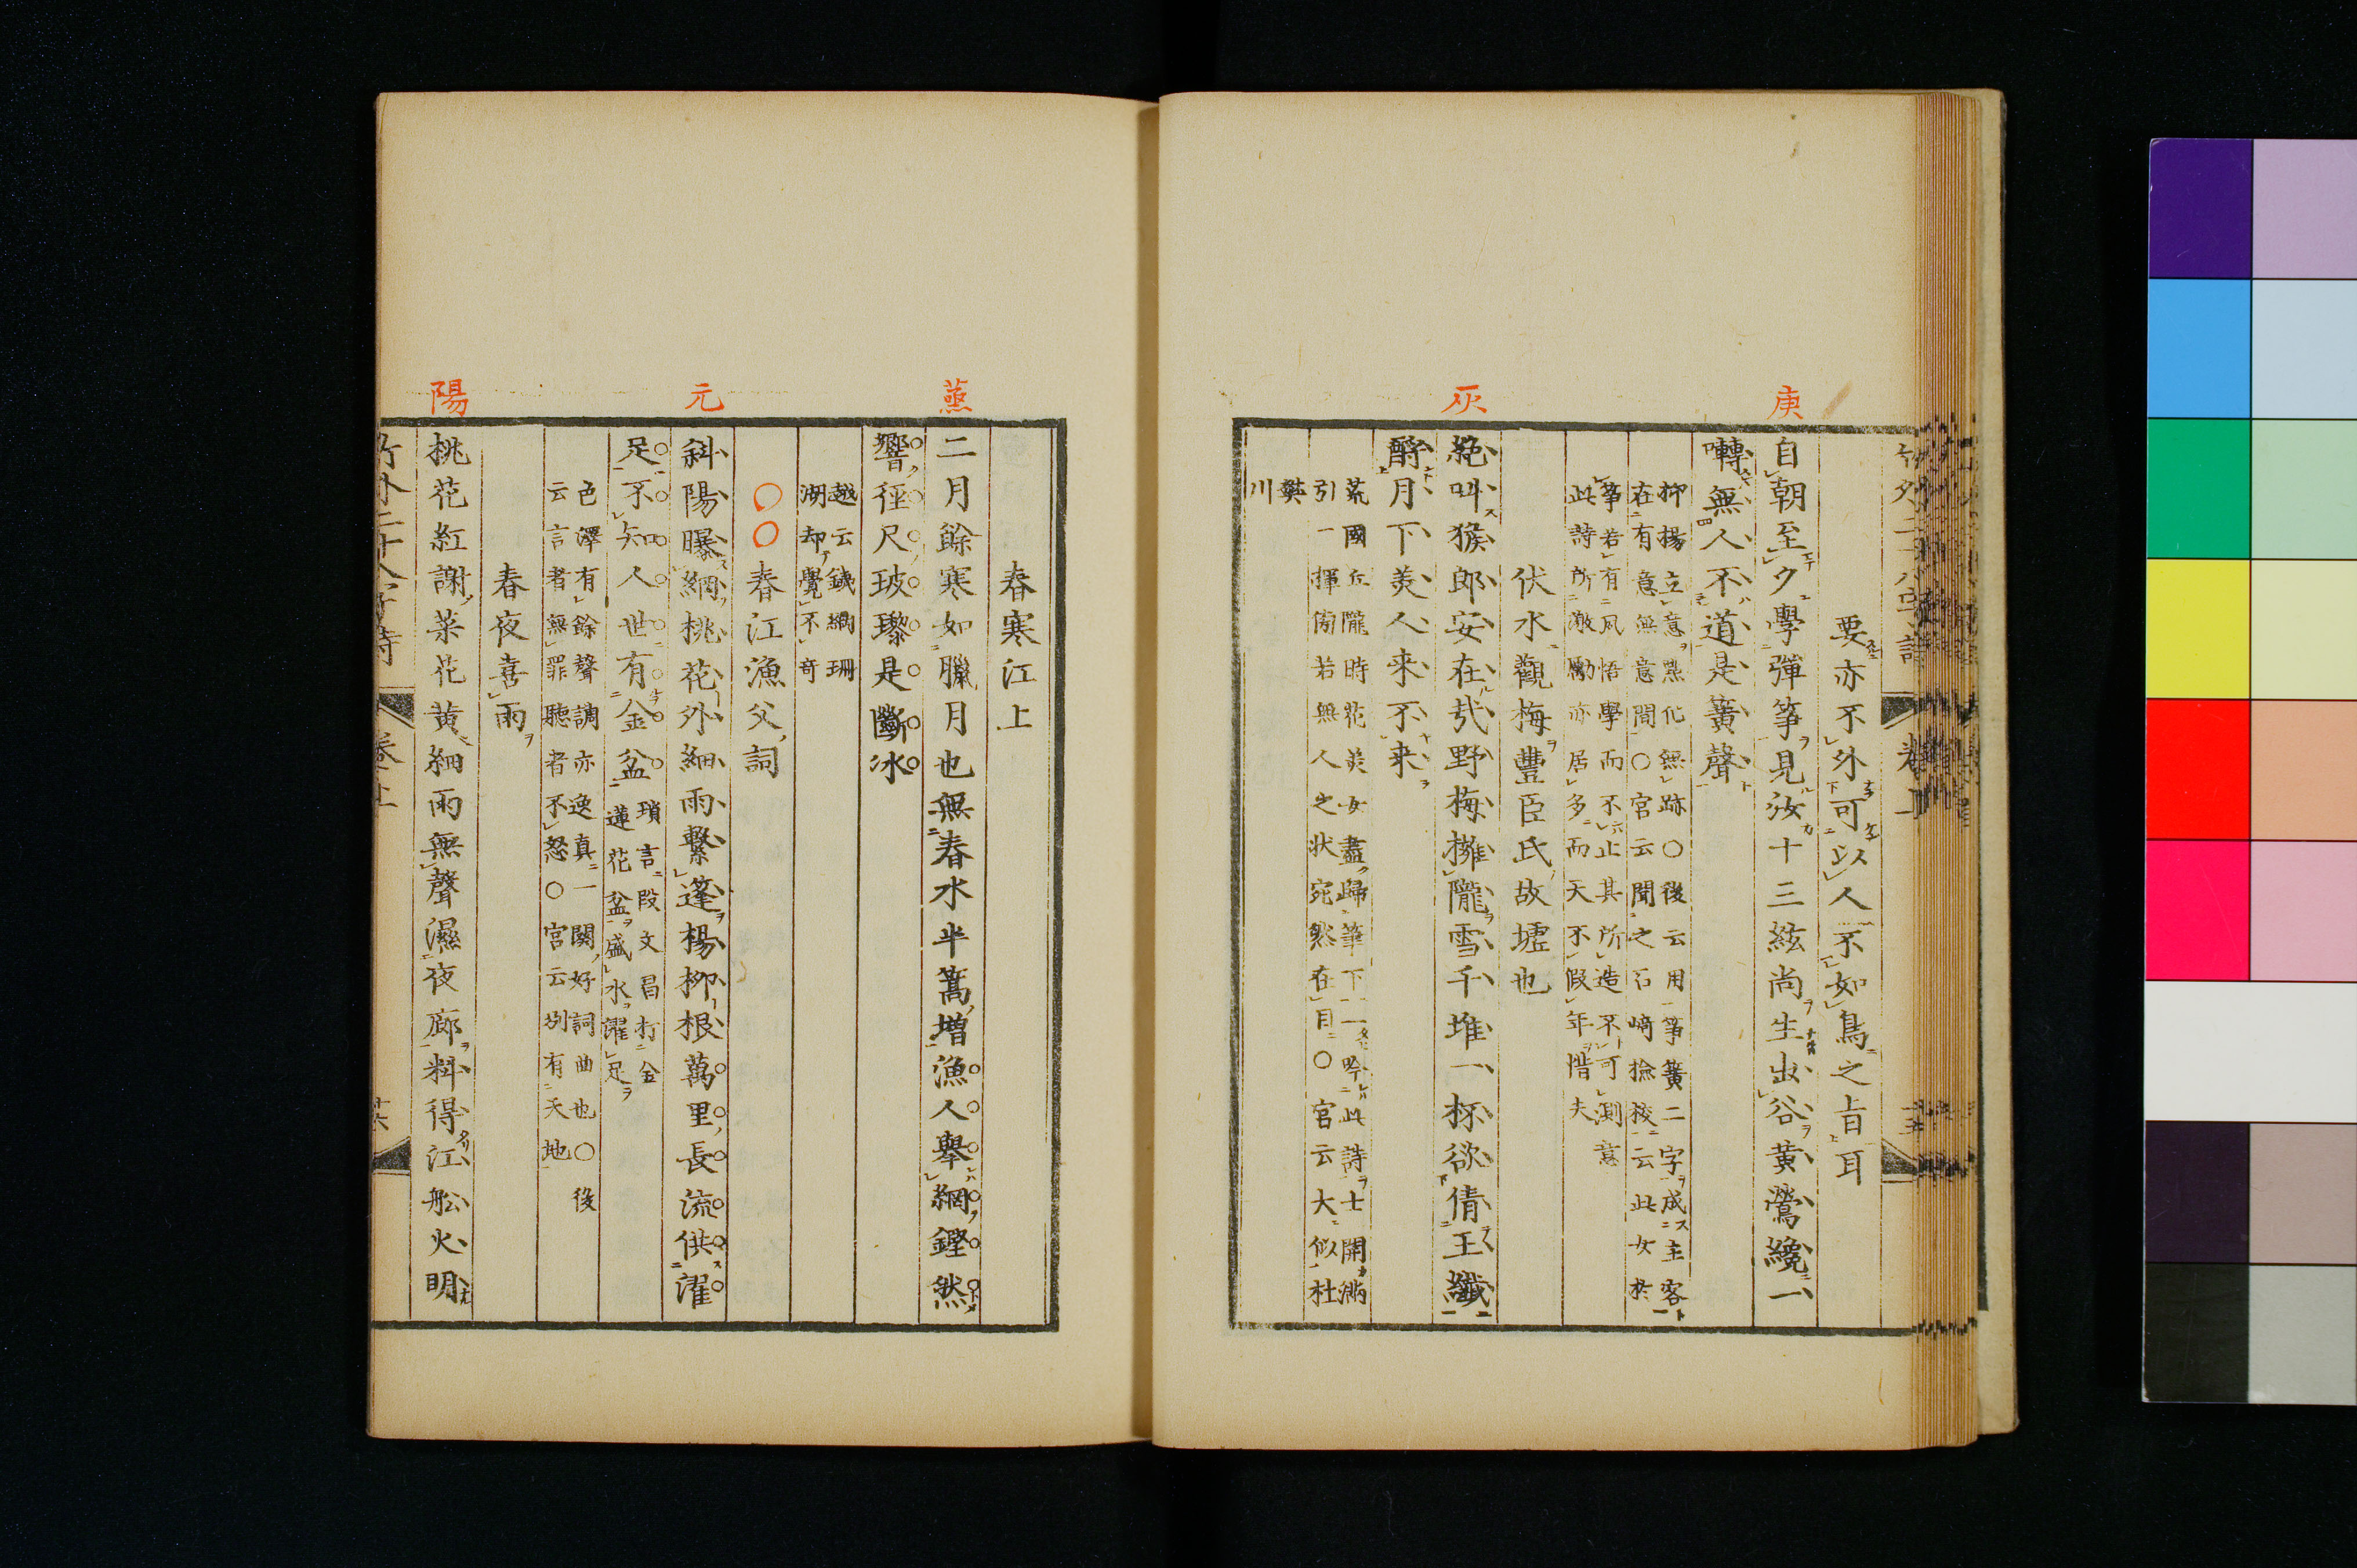 庚
灰
要亦不外可以人不如鳥之旨耳
自朝至夕學彈箏見汝十三絃尚生出谷黃鶯纔一
囀無人不道是簧聲
抑揚立意點化無跡○後云用箏簧二字成主客
在有意無意間○宮云聞之石崎撿校云此女於
箏若有夙悟學而不止其所造不可測意
此詩所激勵亦居多而天不假年惜夫
伏水觀梅豐臣氏故墟也
絕叫猴郎安在哉野梅擁隴雪千堆一杯欲倩王纖
酹月下美人來不来
荒國丘隴時花美女盡歸筆下一吟此詩士開滿
引一揮傍若無人之状宛然在目○宮云大似杜
樊
川
蒸
元
陽
春寒江上
二月餘寒如臘月也無春水半篙增漁人舉網鏗然
響徑尺玻瓈是斷冰
越云鐵網珊
湖却覺不奇
○○春江漁父詞
斜陽曝網桃花外細雨繫篷楊柳根萬里長流供濯
足不知人世有金盆
瑣言段文昌打金
蓮花盆盛水濯足
色澤有餘聲調亦逸真一闋好詞曲也○後
云言者無罪聽者不怒○宮云別有天地
春夜喜雨
桃花紅謝菜花黃細雨無聲濕夜廊料得江船火明
竹外二十八字詩
卷上
十六